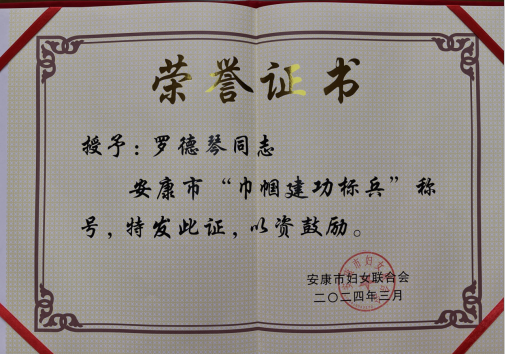 荣誉证书
授予：罗德琴同志
安康市“巾帼建功标兵”称
号，特发此证，以资鼓励。
安康市妇女联合会
二〇二四年三月